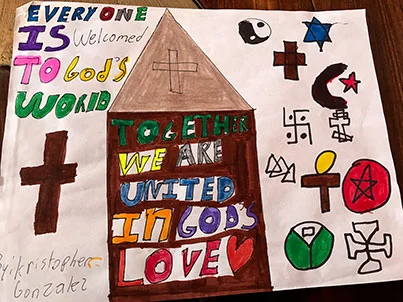 EVERYONE
IS Welcomed
TO God's
WORLD
TOGETHER
WE ARE
UNITED
IN GOD'S
LOVE
By: Kristopher
Gonzalez